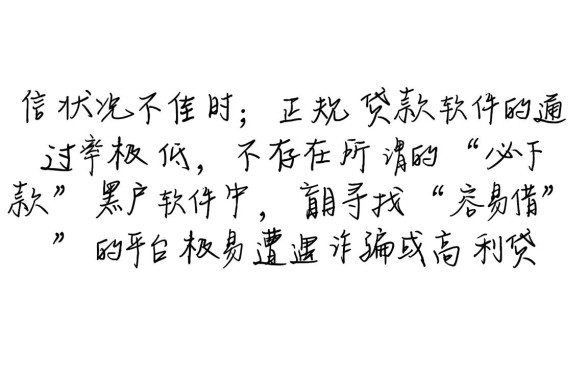 信状况不佳时；正规贷款软件的通
过率极低，不存在所谓的“必下
款”黑户软件中，盲目寻找“容易借”
”的平台极易遭遇诈骗或高利贷